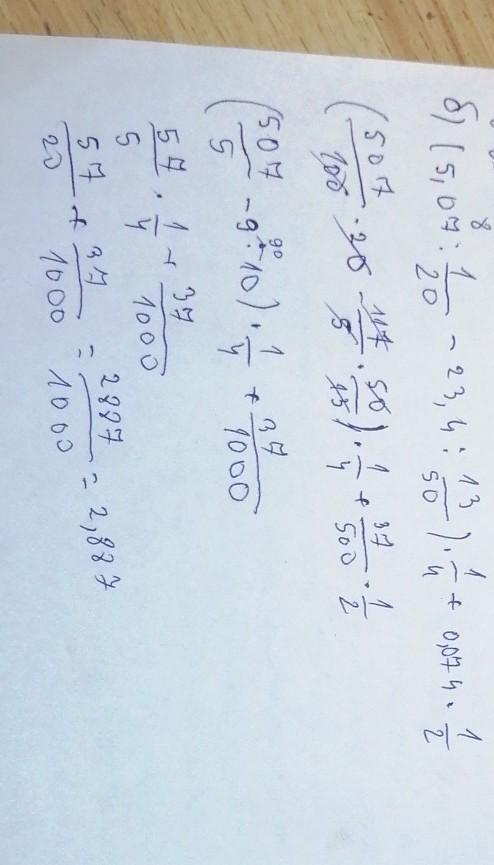 8
б) (5,07 : 1/20 - 23,4 : 13/50) · 1/4 + 0,074 · 1/2
(507/100 · 20 - 117/5 · 50/13) · 1/4 + 37/500 · 1/2
(507/5 - 9 · 10) · 1/4 + 37/1000
90
57/5 · 1/4 + 37/1000
57/20 + 37/1000 = 2887/1000 = 2,887